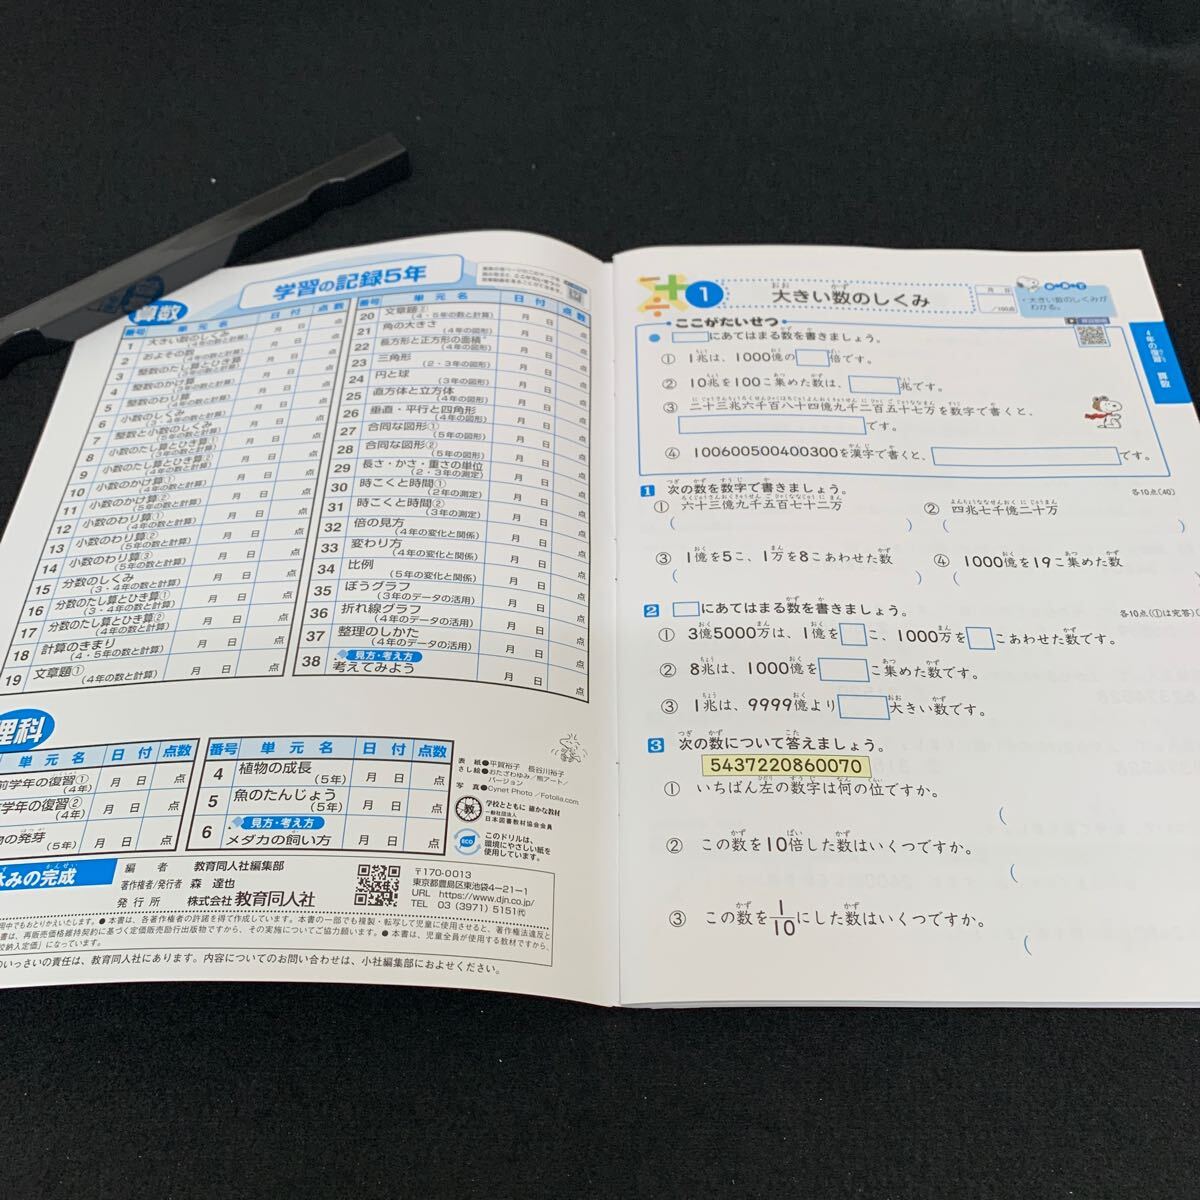 学習の記録5年
算数
番号 単元名 日付 点数
1 大きい数のしくみ (4年の数と計算) 月 日 点
2 およその数 (4年の数と計算) 月 日 点
3 整数のたし算とひき算 月 日 点
4 整数のかけ算 月 日 点
5 整数のわり算 (4年の数と計算) 月 日 点
6 小数のしくみ (3・4年の数と計算) 月 日 点
7 整数と小数のしくみ (5年の数と計算) 月 日 点
8 小数のたし算とひき算① (3年の数と計算) 月 日 点
9 小数のたし算とひき算② (4年の数と計算) 月 日 点
10 小数のかけ算① (4年の数と計算) 月 日 点
11 小数のかけ算② (5年の数と計算) 月 日 点
12 小数のわり算① (4年の数と計算) 月 日 点
13 小数のわり算② (5年の数と計算) 月 日 点
14 小数のわり算③ (5年の数と計算) 月 日 点
15 分数のしくみ (3・4年の数と計算) 月 日 点
16 分数のたし算とひき算① (3・4年の数と計算) 月 日 点
17 分数のたし算とひき算② (4年の数と計算) 月 日 点
18 計算のきまり (4・5年の数と計算) 月 日 点
19 文章題① (4年の数と計算) 月 日 点
番号 単元名 日付 点数
20 文章題② (4・5年の数と計算) 月 日 点
21 角の大きさ (4年の図形) 月 日 点
22 長方形と正方形の面積 (4年の図形) 月 日 点
23 三角形 (2・3年の図形) 月 日 点
24 円と球 (3年の図形) 月 日 点
25 直方体と立方体 (4年の図形) 月 日 点
26 垂直・平行と四角形 (4年の図形) 月 日 点
27 合同な図形① (5年の図形) 月 日 点
28 合同な図形② (5年の図形) 月 日 点
29 長さ・かさ・重さの単位 (2・3年の測定) 月 日 点
30 時こくと時間① (2年の測定) 月 日 点
31 時こくと時間② (3年の測定) 月 日 点
32 倍の見方 (4年の変化と関係) 月 日 点
33 変わり方 (4年の変化と関係) 月 日 点
34 比例 (5年の変化と関係) 月 日 点
35 ぼうグラフ (3年のデータの活用) 月 日 点
36 折れ線グラフ (4年のデータの活用) 月 日 点
37 整理のしかた (4年のデータの活用) 月 日 点
38 見方・考え方 考えてみよう 月 日 点
理科
単元名 日付 点数
前学年の復習① (4年) 月 日 点
前学年の復習② (4年) 月 日 点
物の発芽 (5年) 月 日 点
番号 単元名 日付 点数
4 植物の成長 (5年) 月 日 点
5 魚のたんじょう (5年) 月 日 点
6 見方・考え方 メダカの飼い方 月 日 点
表紙●平賀裕子 長谷川裕子
さし絵●おたざわゆみ/熊アート/
バージョン
写真●Cynet Photo/Fotolia.com
学校とともに 確かな教材
一般社団法人
日本図書教材協会会員
ECO
このドリルは、
環境にやさしい紙を
使用しています。
休みの完成
編者 教育同人社編集部
著作権者/発行者 森 達也
発行所 株式会社 教育同人社
〒170-0013
東京都豊島区東池袋4-21-1
URL https://www.djn.co.jp/
TEL 03(3971)5151㈹
●本書は、各著作権者の許諾を得て作成しています。本書の一部でも複製・転写して児童に使用させると、著作権法違反と
書は、再販売価格維持契約に基づく定価販売励行出版物ですから、その実施についてご協力願います。●本書は、児童全員が使用する教材ですから、
校納入定価」になっています。
のいっさいの責任は、教育同人社にあります。内容についてのお問い合わせは、小社編集部におよせください。
1 大きい数のしくみ
月 日
/100点
・大きい数のしくみが
わかる。
4年の復習 算数
ここがたいせつ
●□にあてはまる数を書きましょう。
① 1兆は、1000億の□倍です。
② 10兆を100こ集めた数は、□兆です。
③ 二十三兆六千百八十四億九千二百五十七万を数字で書くと、
□です。
④ 100600500400300を漢字で書くと、□です。
1 次の数を数字で書きましょう。 各10点(40)
① 六十三億九千五百七十二万 ② 四兆七千億二十万
( ) (
③ 1億を5こ、1万を8こあわせた数 ④ 1000億を19こ集めた数
( ) (
2 □にあてはまる数を書きましょう。 各10点(①は完答)(
① 3億5000万は、1億を□こ、1000万を□こあわせた数です。
② 8兆は、1000億を□こ集めた数です。
③ 1兆は、9999億より□大きい数です。
3 次の数について答えましょう。
5437220860070
① いちばん左の数字は何の位ですか。
(
② この数を10倍した数はいくつですか。
(
③ この数を1/10にした数はいくつですか。
(